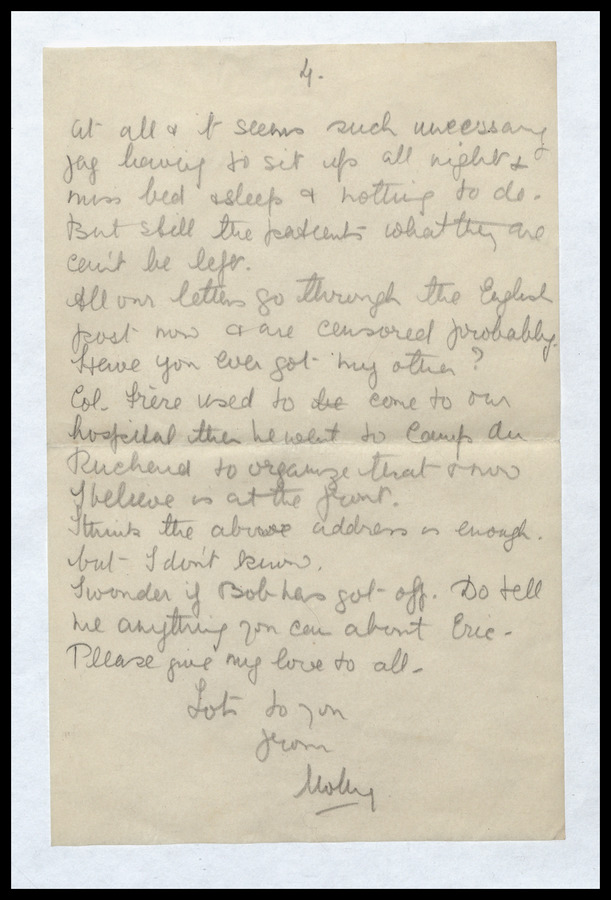 4.
at all & it seems such unecessary
jag having to sit up all night &
miss bed & sleep & nothing to do.
But still the patients what they are
can't be left.
All our letters go through the English
post now & are censored probably.
Have you ever got my other?
Col. Frère used to be come to our
hospital then he went to Camp du
Ruchard to organize that & now
I believe is at the front.
I think the above address is enough.
but I don't know.
I wonder if Bob has got off. Do tell
me anything you can about Eric.
Please give my love to all.
Lots to you
from
Molly